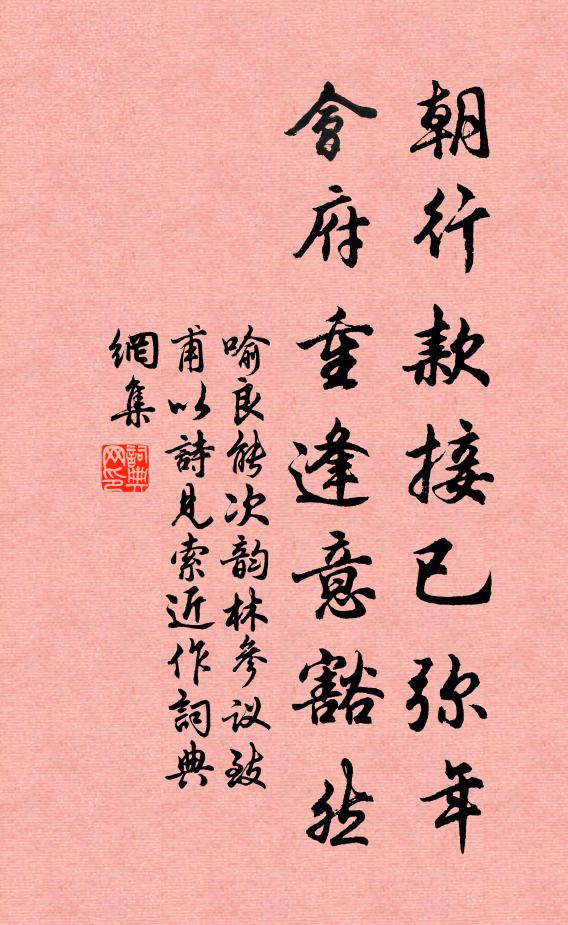 朝行款接已弥年
會府重逢意豁然
喻良能次韵林參议致
甫以詩見索近作詞典
網集
詞典网印